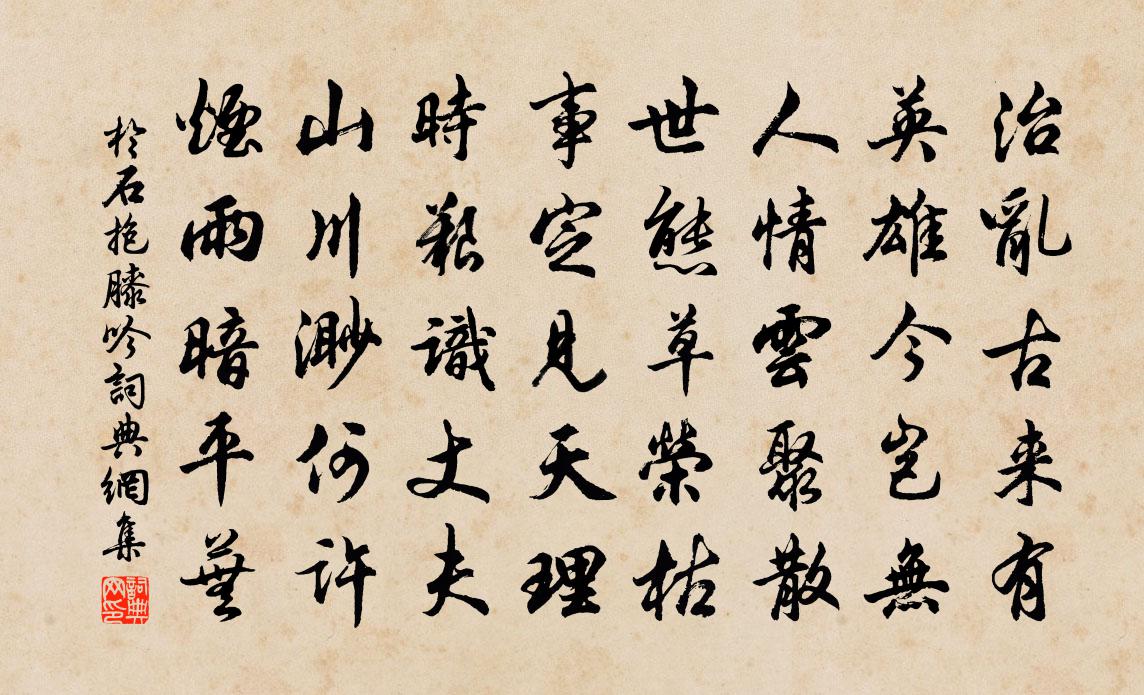 治亂古来有
英雄今豈無
人情雲聚散
世態草榮枯
事定見天理
時艱識丈夫
山川渺何許
煙雨暗平蕪
於石抱膝吟詞典網集
詞典
网印